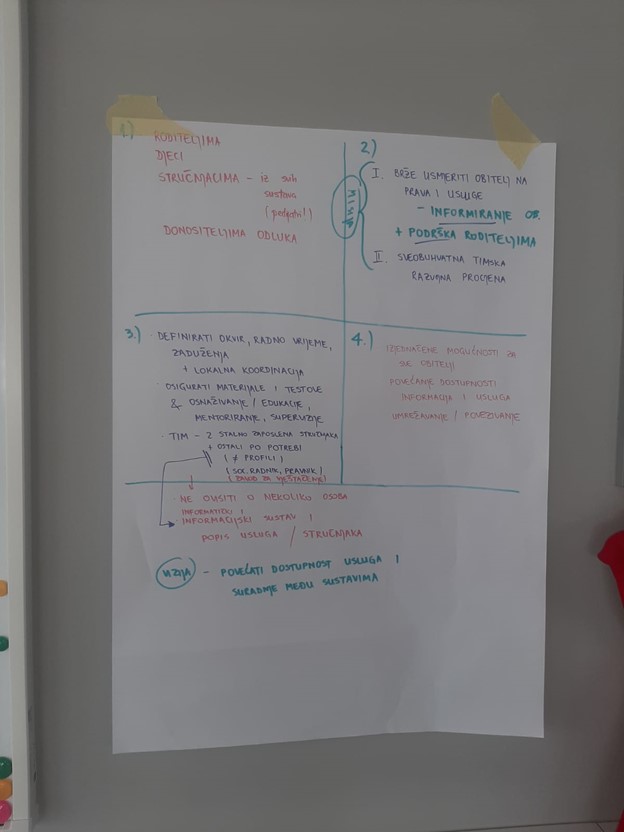 1)
RODITELJIMA
DJECI
STRUČNJACIMA - iz svih
sustava
DONOSITELJIMA ODLUKA
2)
MISIJA
I. BRŽE USMJERITI OBITELJ NA
PRAVA I USLUGE
- INFORMIRANJE OB.
+ PODRŠKA RODITELJIMA
II. SVEOBUHVATNA TIMSKA
RAZVOJNA PROCJENA
3.)
· DEFINIRATI OKVIR, RADNO VRIJEME,
ZADUŽENJA
+ LOKALNA KOORDINACIJA
· OSIGURATI MATERIJALE I TESTOVE
& OSNAŽIVANJE / EDUKACIJE,
MENTORIRANJE, SUPERVIZIJE
· TIM - 2 STALNO ZAPOSLENA STRUČNJAKA
+ OSTALI PO POTREBI
( ≠ PROFILI )
( SOC. RADNIK, PRAVNIK )
( ZAVOD ZA VJEŠTAČENJE )
· NE OVISITI O NEKOLIKO OSOBA
· INFORMACIJSKI SUSTAV I
POPIS USLUGA / STRUČNJAKA
4.)
IZJEDNAČENE MOGUĆNOSTI ZA
SVE OBITELJI
POVEĆANJE DOSTUPNOSTI
INFORMACIJA I USLUGA
UMREŽAVANJE / POVEZIVANJE
VIZIJA - POVEĆATI DOSTUPNOST USLUGA I
SURADNJE MEĐU SUSTAVIMA